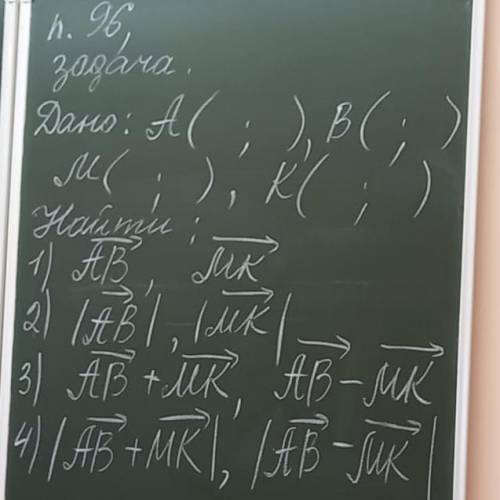 п. 96,
задача.
Дано: A( ; ), B( ; )
M( ; ), K( ; )
Найти:
1) $\overrightarrow{AB}$, $\overrightarrow{MK}$
2) |$\overrightarrow{AB}$|, |$\overrightarrow{MK}$|
3) $\overrightarrow{AB}$ + $\overrightarrow{MK}$, $\overrightarrow{AB}$ − $\overrightarrow{MK}$
4) |$\overrightarrow{AB}$ + $\overrightarrow{MK}$|, |$\overrightarrow{AB}$ − $\overrightarrow{MK}$|